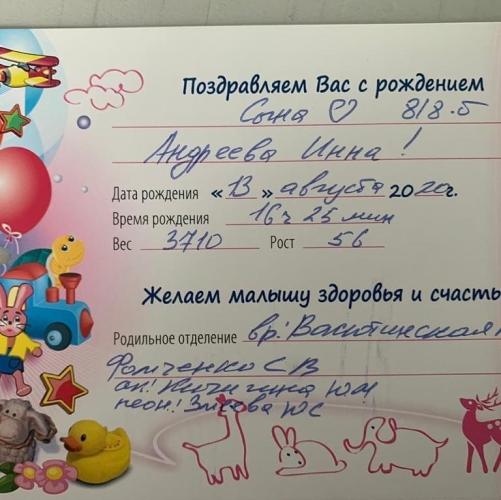 Поздравляем Вас с рождением
Сына ♡ 8/8-б
Андреева Инна!
Дата рождения «13» августа 2020г.
Время рождения 16 ч 25 мин
Вес 3710 Рост 56
Желаем малышу здоровья и счасть
Родильное отделение вр: Васютинская
Фомченко С В
ак: ЮМ
неон: Змеева ЮС